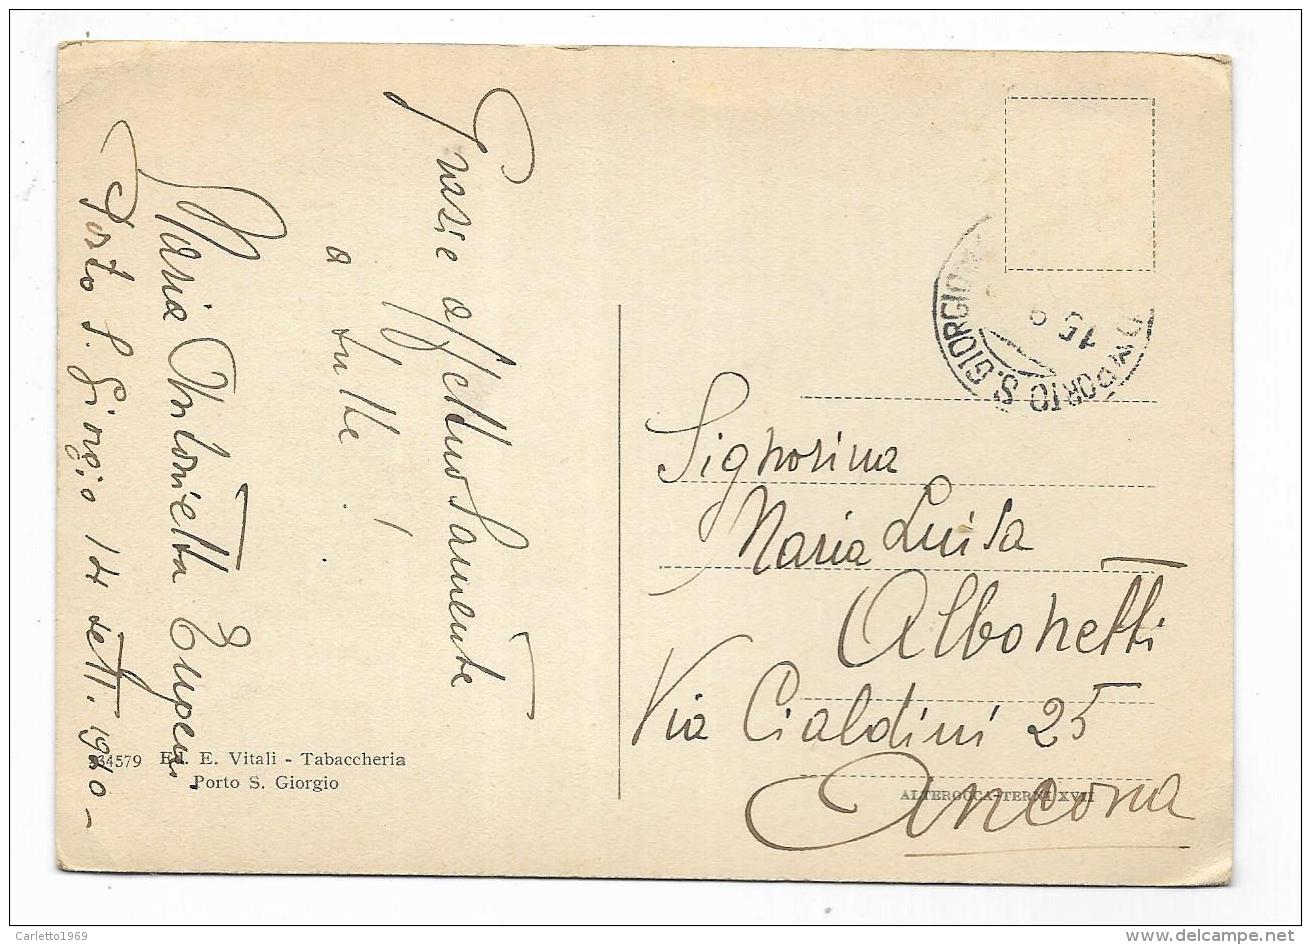 Grazie affettuosamente
a tutte!
Maria Antonietta
Porto S. Giorgio 14 sett. 1940 -
34579 Ed. E. Vitali - Tabaccheria
Porto S. Giorgio
PORTO S. GIORGIO
15 9
Signorina
Maria Luisa
Albonetti
Via Cialdini 25
Ancona
ALTEROCCA-TERNI XVII
Carletto1969
delcampe.net